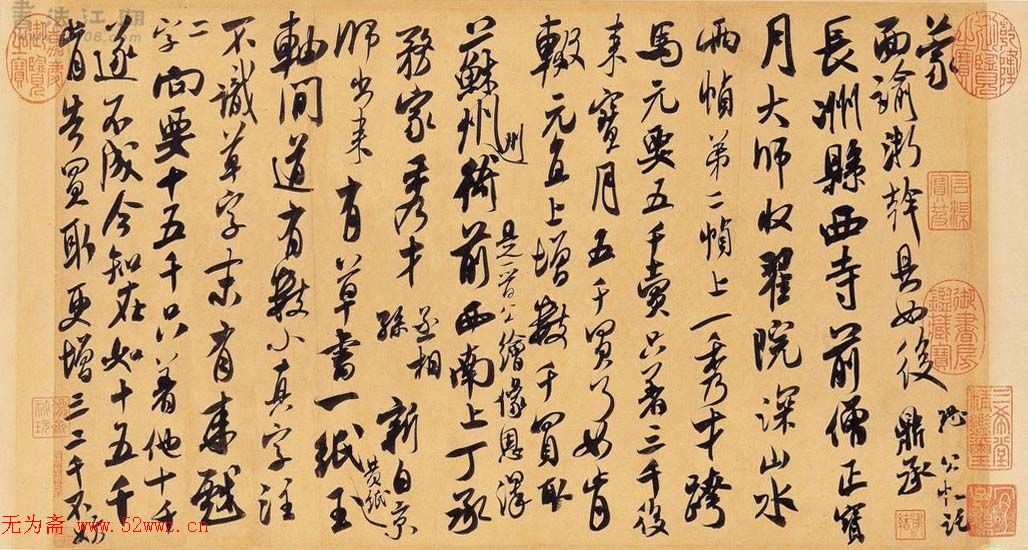 蒙
面諭浙幹具如後 恐公忙託
鼎承
長洲縣西寺前僧正寶
月大師收翟院深山水
兩幀第二幀上一秀才跨
馬元要五千賣只著三千後
來寶月五千買了如肯
輟元直上增數千買取
是晉公繪像恩澤
蘇州州衙前西南上丁承
務家秀才 丞相孫 新自京
師出來有草書一紙 黃紙 玉
軸間道有數小真字注
不識草字末有來戲
二字向要十五千只著他十千
遂不成今知在如十五千
肯告買取更增三二千不妨
書法江湖
无为斋 www.52wwz.cn